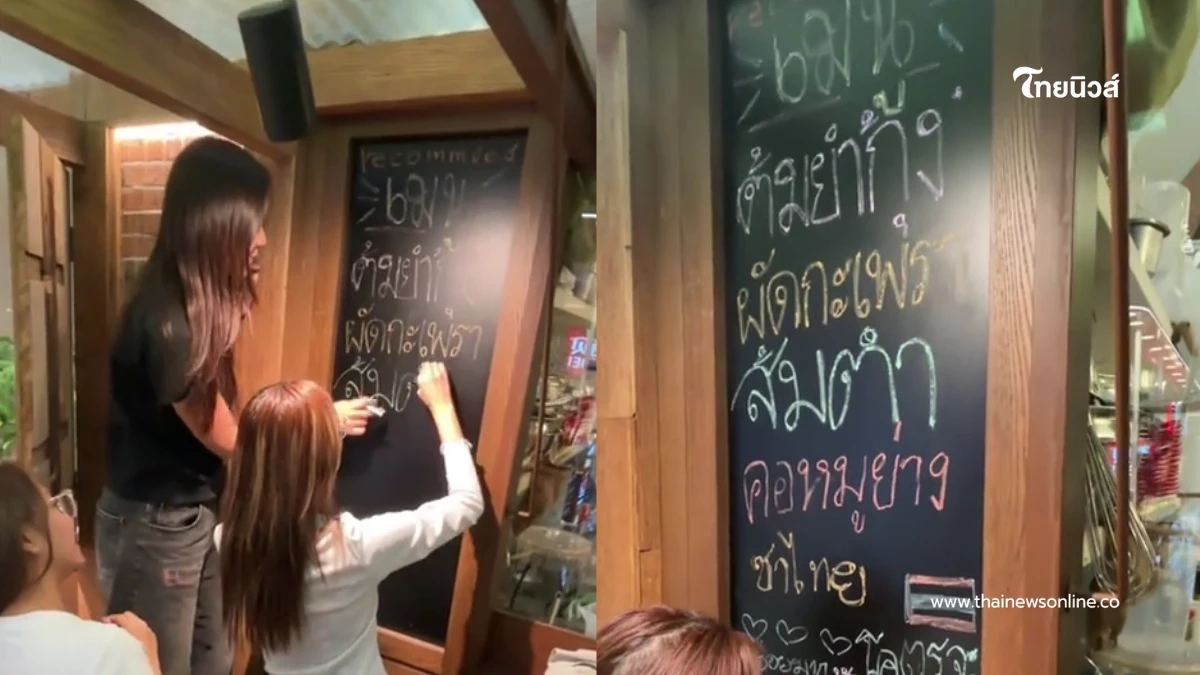 recommded
เมนู
ต้มยำกุ้ง
ผัดกะเพรา
ส้มตำ
ไทยนิวส์
เมนู
ต้มยำกุ้ง
ผัดกะเพรา
ส้มตำ
คอหมูย่าง
ชาไทย
www.thainewsonline.co
อร่อยมากๆ โคตรๆ